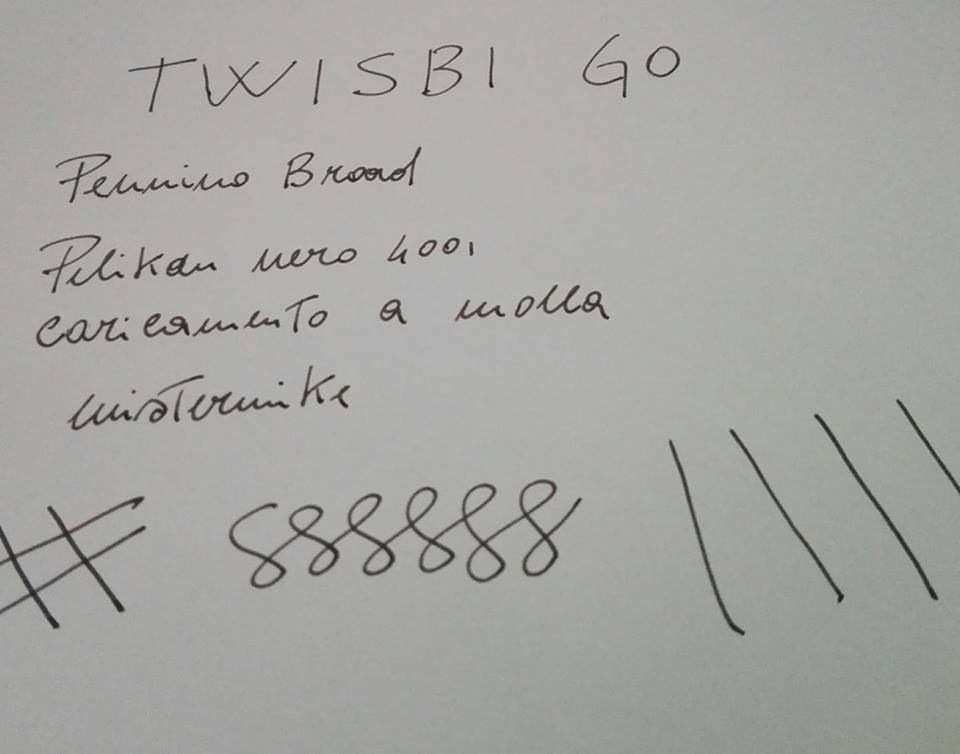 TWISBI GO
Pennino Broad
Pelikan nero 4001
caricamento a molla
mistermike